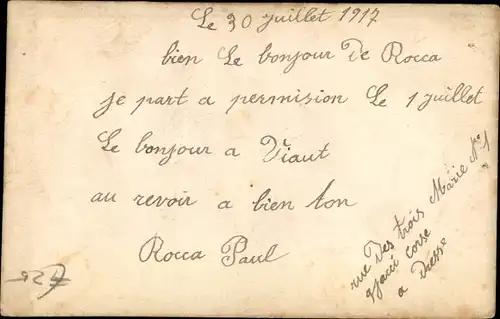 Le 30 juillet 1917
bien Le bonjour De Rocca
je part a permision Le 1 juillet
Le bonjour a Viaut
au revoir a bien ton
Rocca Paul
rue Des trois Marie No 1
ajacii corse
a Diesse